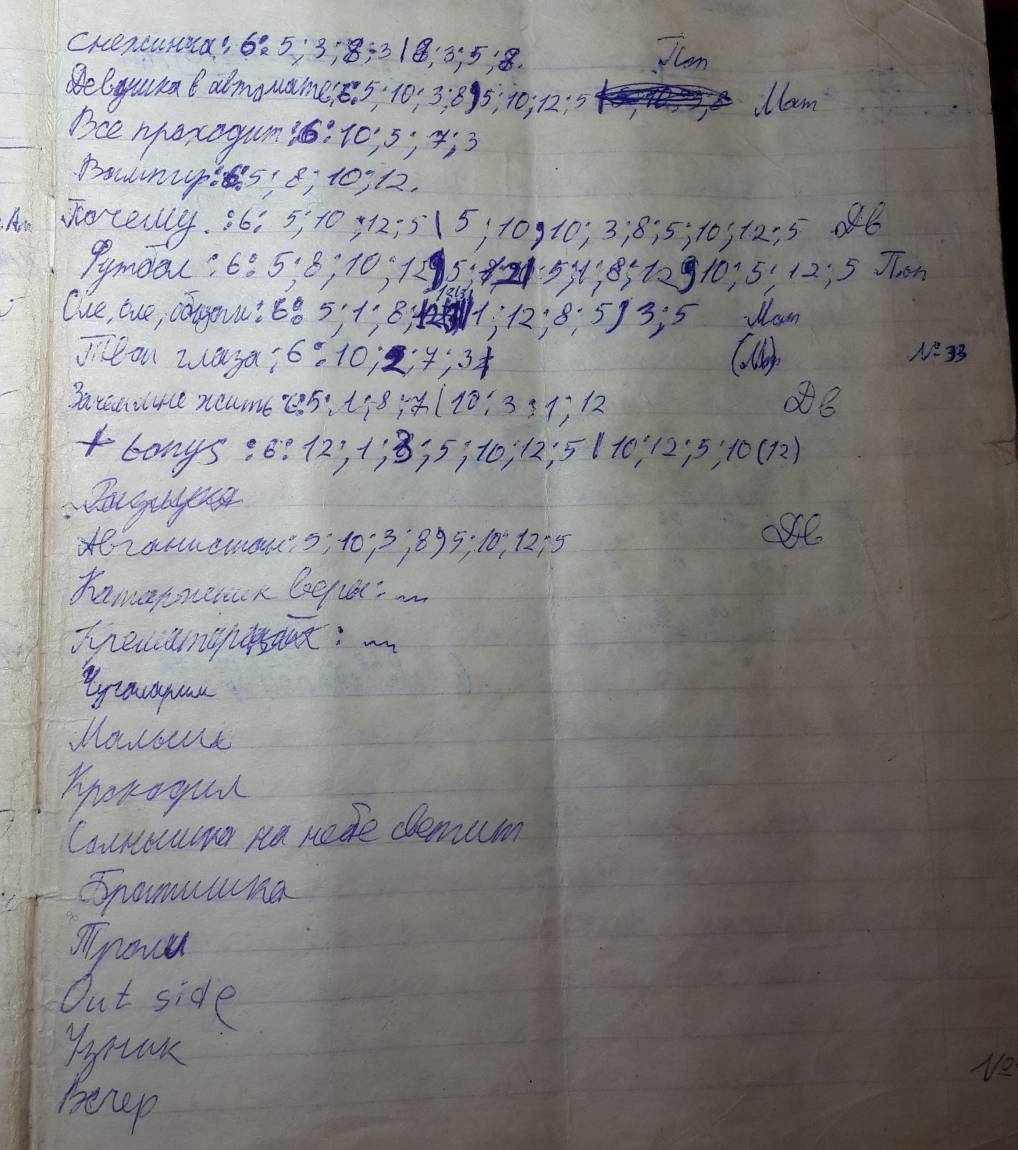 Снежинка: 6: 5; 3; 8; 3 | 8; 3; 5; 8. Поп
Девушка в автомате: 6: 5; 10; 3; 8) 5; 10; 12; 5 Мат
Все проходит: 6: 10; 5; 7; 3
Вампир: 6: 5; 8; 10; 12.
Почему: 6: 5; 10; 12; 5 | 5; 10) 10; 3; 8; 5; 10; 12; 5 Дв
Футбол: 6: 5; 8; 10; 12) 5; 5; 1; 8; 12) 10; 5; 12; 5 Поп
Оле, оле, 6: 5; 1; 8; 1; 12; 8; 5) 3; 5 Мат
Твои глаза; 6: 10; 2; 7; 3 № 33
Зачем мне жить 6: 5; 1; 8; 7 | 10; 3; 1; 12 Дв
+ bonys: 6: 12; 1; 3; 5; 10; 12; 5 | 10; 12; 5; 10 (12)
Авганистан: 5; 10; 3; 8) 5; 10; 12; 5 Дв
Катаржник веры: ...
: ...
Малыш
Крокодил
Солнышка на небе светит
Братишка
Троли
Out side
Узник
Вечер
№